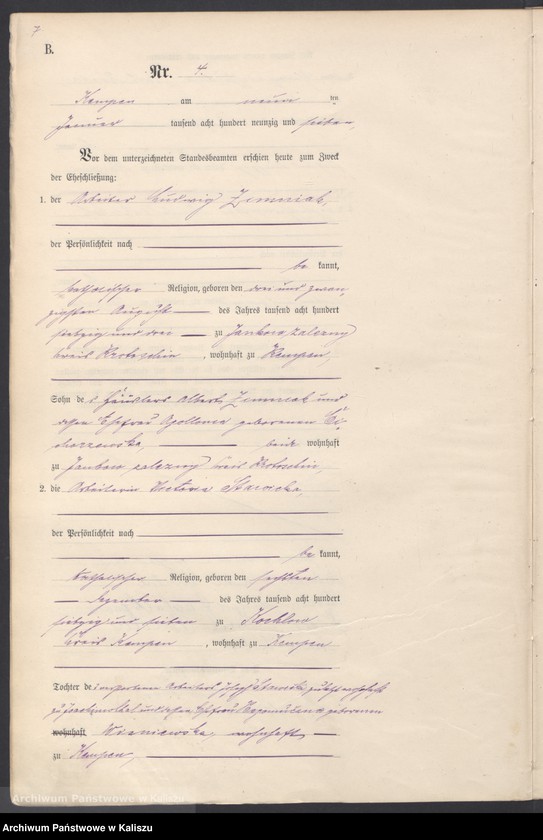 7
B.
Nr. 4.
Kempen am neun ten
Januar tausend acht hundert neunzig und sieben,
Vor dem unterzeichneten Standesbeamten erschien heute zum Zweck
der Eheschließung:
1. der Arbeiter Ludwig Zimniak,
der Persönlichkeit nach
be kannt,
katholischer Religion, geboren den drei und zwan
zigsten August des Jahres tausend acht hundert
siebzig und drei zu Jankow zalesny
Kreis Krotoschin, wohnhaft zu Kempen,
Sohn des Häuslers Albert Zimniak und
dessen Ehefrau Apollonia geborenen
beide wohnhaft
zu Jankow zalesny Kreis Krotoschin,
2. die Arbeiterin
der Persönlichkeit nach
be kannt,
katholischer Religion, geboren den sechsten
Dezember des Jahres tausend acht hundert
siebzig und sieben zu Kochlow
Kreis Kempen, wohnhaft zu Kempen
Tochter des verstorbenen Arbeiters Joseph zuletzt wohnhaft
zu und dessen Ehefrau geborenen
wohnhaft Wisniewska, wohnhaft
zu Kempen,
Archiwum Państwowe w Kaliszu
Archiwum Państwowe w Kaliszu